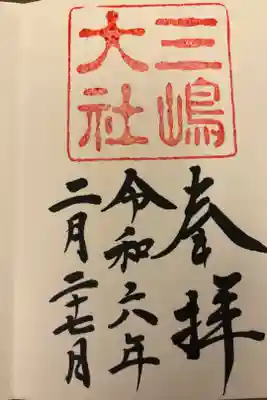 三嶋
大社
奉拝
令和六年
二月二十七月